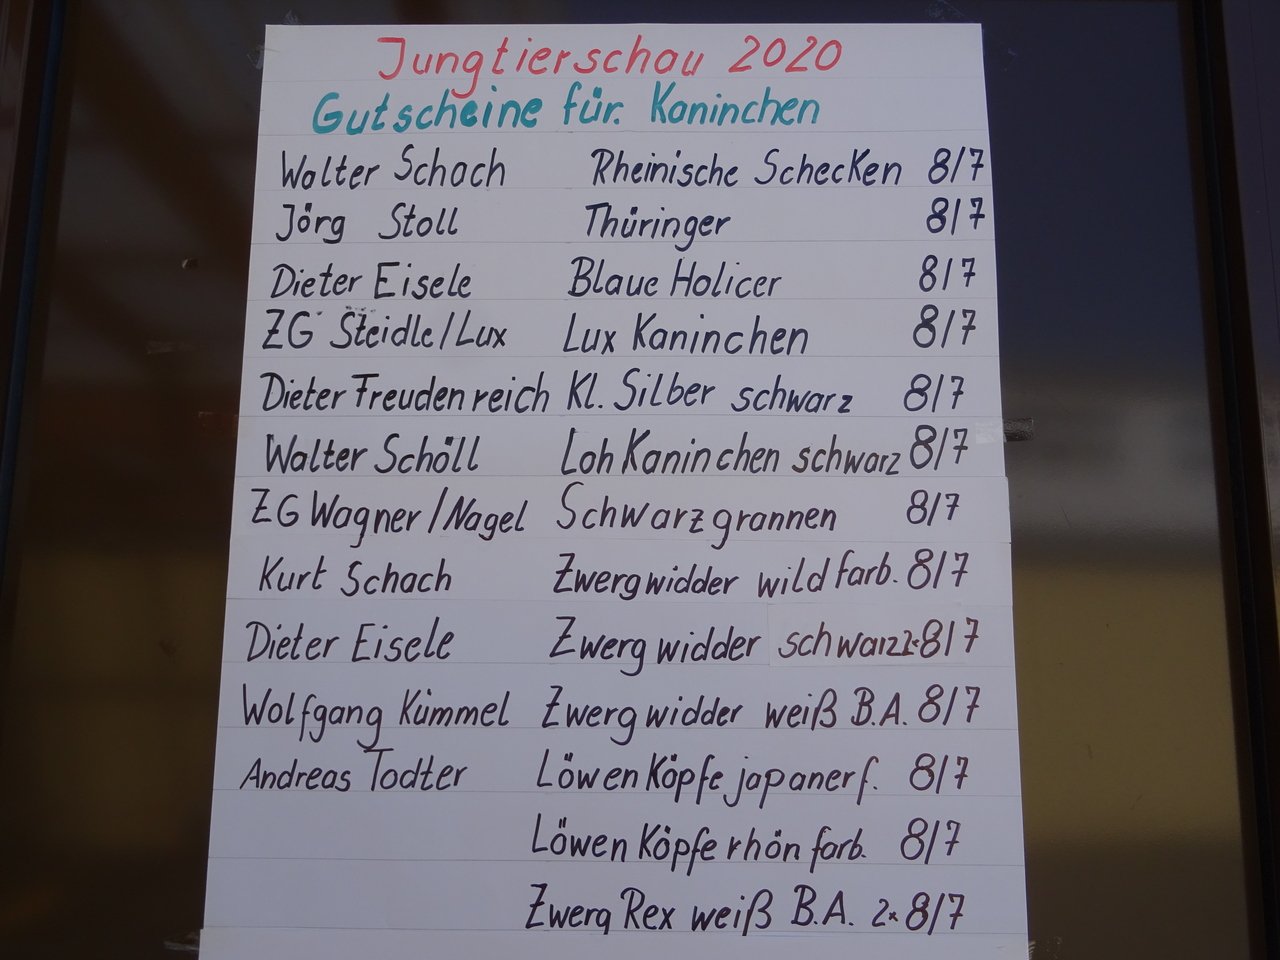 Jungtierschau 2020
Gutscheine für. Kaninchen
Walter Schach Rheinische Schecken 8/7
Jörg Stoll Thüringer 8/7
Dieter Eisele Blaue Holicer 8/7
ZG Steidle/Lux Lux Kaninchen 8/7
Dieter Freudenreich Kl. Silber schwarz 8/7
Walter Schöll Loh Kaninchen schwarz 8/7
ZG Wagner/Nagel Schwarzgrannen 8/7
Kurt Schach Zwergwidder wildfarb. 8/7
Dieter Eisele Zwergwidder schwarz 2x 8/7
Wolfgang Kümmel Zwergwidder weiß B.A. 8/7
Andreas Todter Löwen Köpfe japanerf. 8/7
Löwen Köpfe rhön farb. 8/7
Zwerg Rex weiß B.A. 2x 8/7